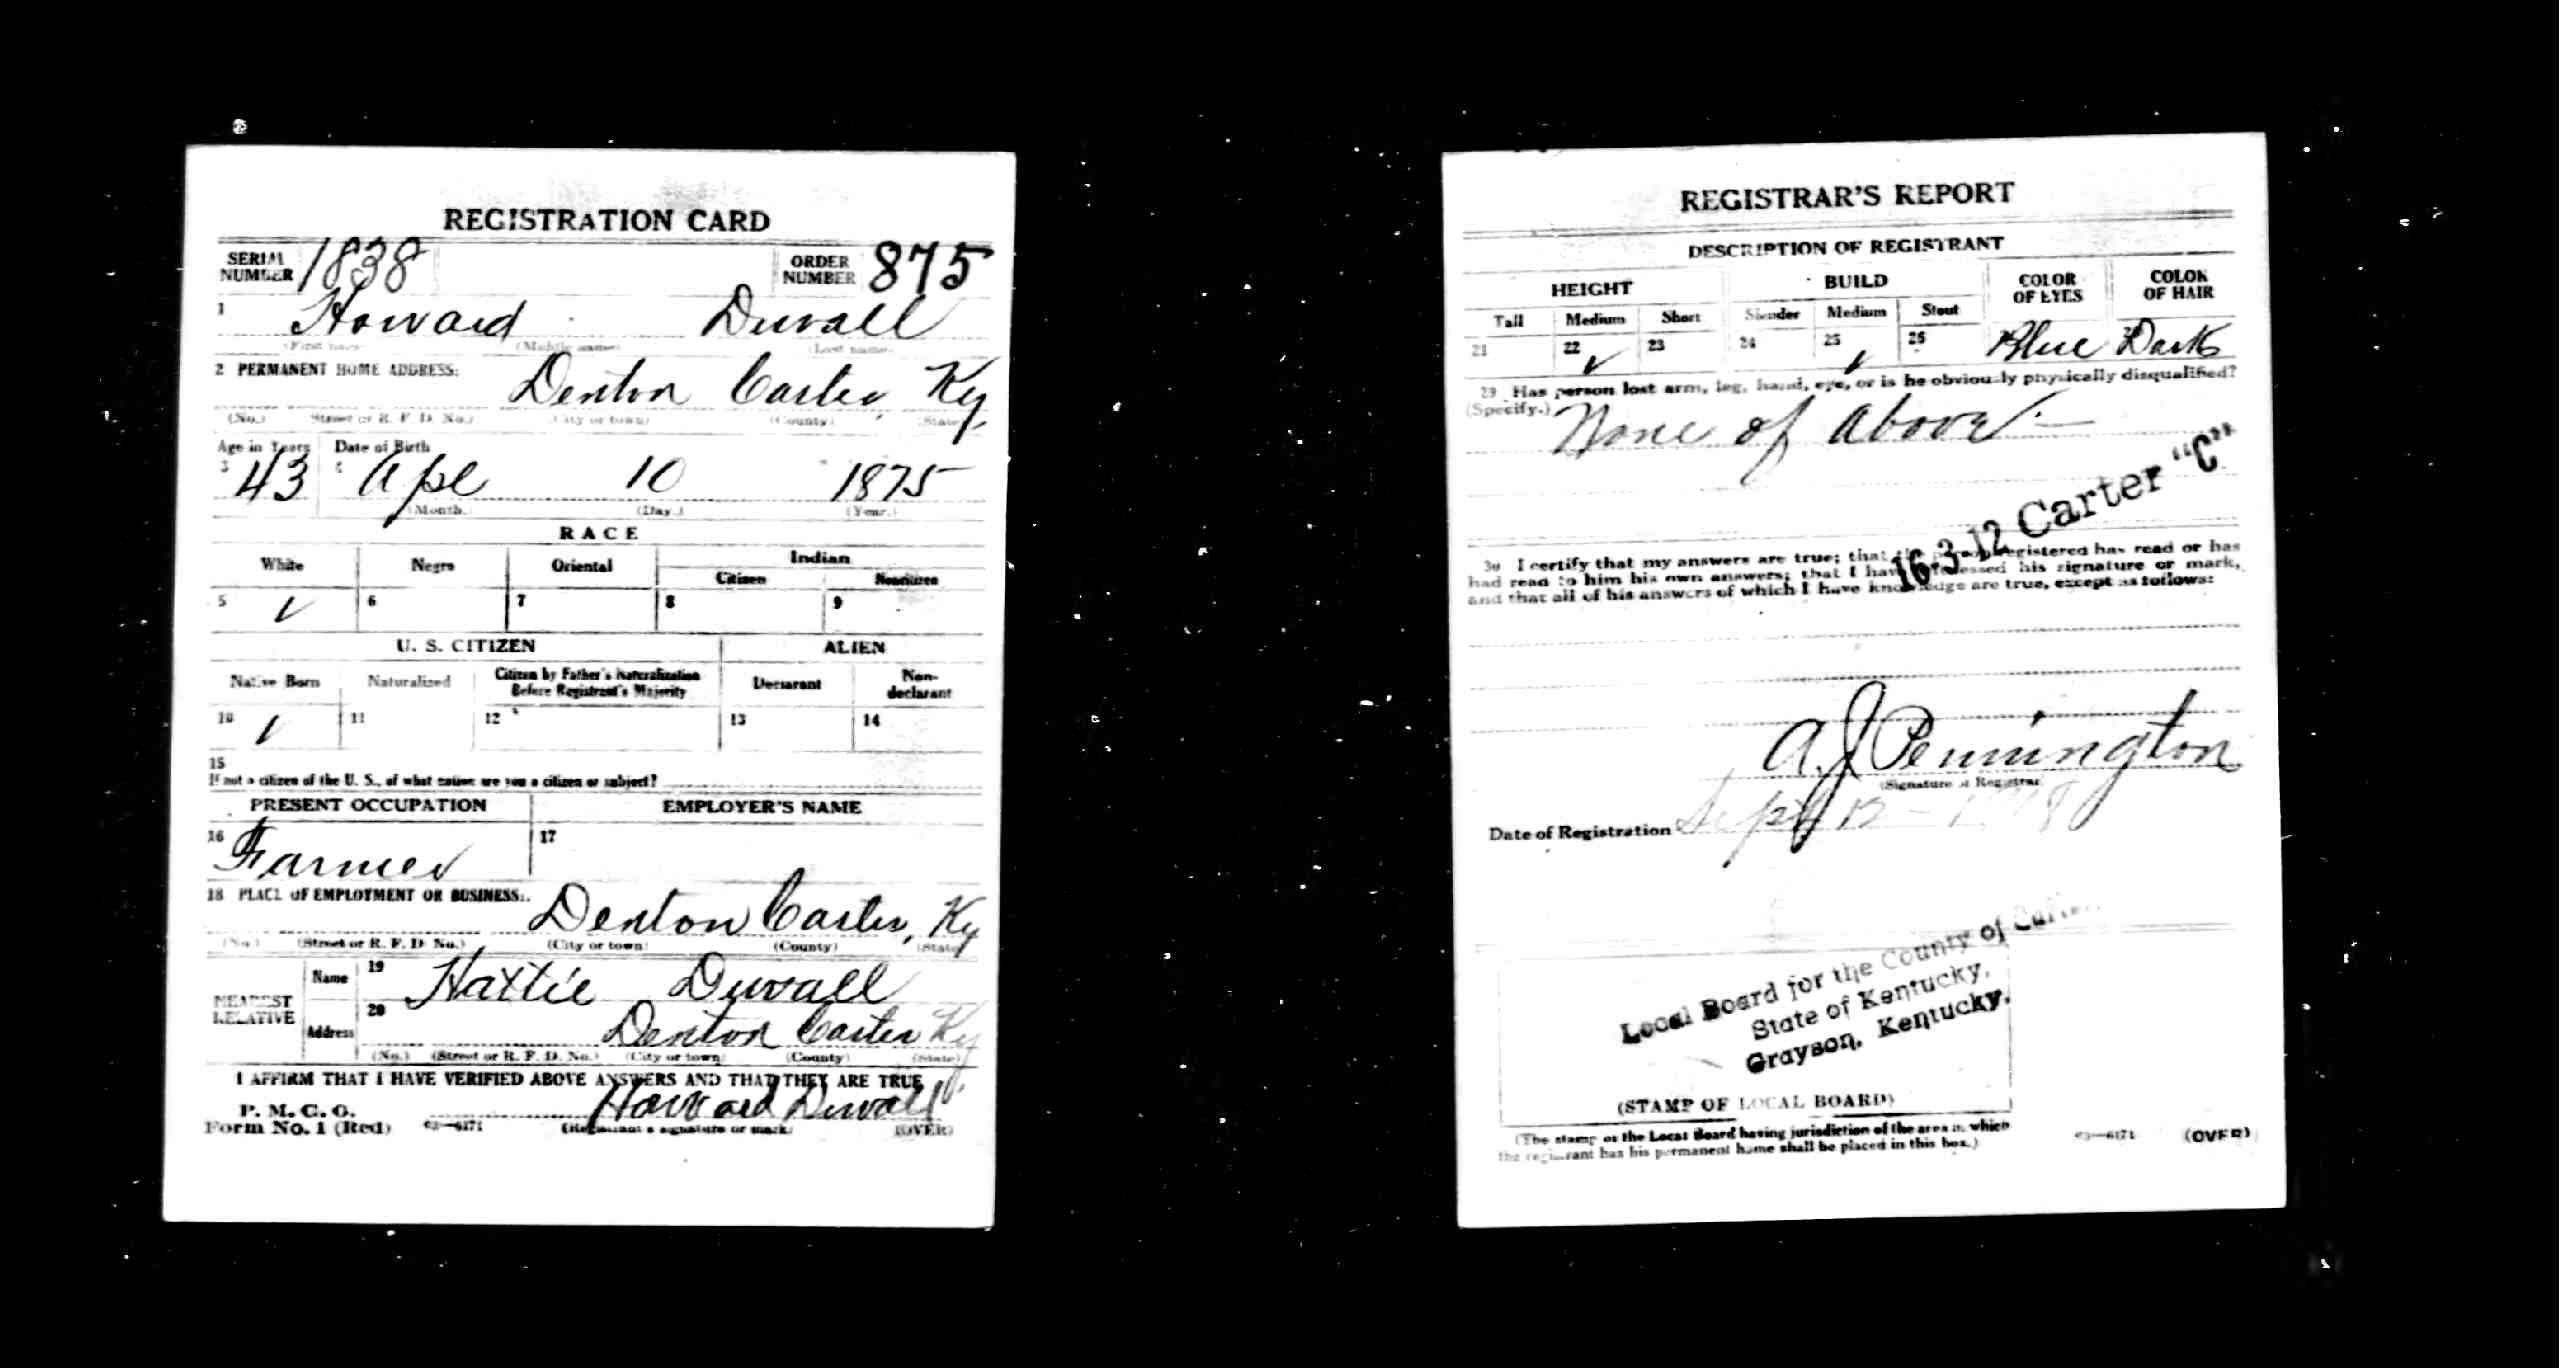 REGISTRATION CARD
SERIAL NUMBER 1838 ORDER NUMBER 875
1 Howard Duvall
(First name) (Middle name) (Last name)
2 PERMANENT HOME ADDRESS: Denton Carter, Ky,
(No.) Street or R. F. D. No.) (City or town) (County) (State)
Age in Years Date of Birth
3 43 4 Apl 10 1875
(Month.) (Day.) (Year.)
RACE
White Negro Oriental Indian
Citizen Noncitizen
5 ✓ 6 7 8 9
U. S. CITIZEN ALIEN
Native Born Naturalized Citizen by Father's Naturalization Before Registrant's Majority Declarant Non-declarant
10 ✓ 11 12 13 14
15
If not a citizen of the U. S., of what nation are you a citizen or subject?
PRESENT OCCUPATION EMPLOYER'S NAME
16 Farmer 17
18 PLACE OF EMPLOYMENT OR BUSINESS:
Denton Carter, Ky
(No.) (Street or R. F. D. No.) (City or town) (County) (State)
NEAREST RELATIVE Name 19 Hattie Duvall
Address 20 Denton Carter Ky
(No.) (Street or R. F. D. No.) (City or town) (County) (State)
I AFFIRM THAT I HAVE VERIFIED ABOVE ANSWERS AND THAT THEY ARE TRUE
P. M. G. O.
Form No. 1 (Red) 03—6171 Howard Duvall
(Registrant's signature or mark) (OVER)
REGISTRAR'S REPORT
DESCRIPTION OF REGISTRANT
HEIGHT BUILD COLOR OF EYES COLOR OF HAIR
Tall Medium Short Slender Medium Stout
21 22 ✓ 23 24 25 ✓ 26 Blue Dark
29 Has person lost arm, leg, hand, eye, or is he obviously physically disqualified?
(Specify.) None of Above
16-3-12 Carter "C"
30 I certify that my answers are true; that the person registered has read or has
had read to him his own answers; that I have witnessed his signature or mark,
and that all of his answers of which I have knowledge are true, except as follows:
A. J. Pennington
(Signature of Registrar)
Date of Registration Sept 12 - 1918
Local Board for the County of Carter,
State of Kentucky,
Grayson, Kentucky.
(STAMP OF LOCAL BOARD)
(The stamp of the Local Board having jurisdiction of the area in which
the registrant has his permanent home shall be placed in this box.)
03—6171 (OVER)